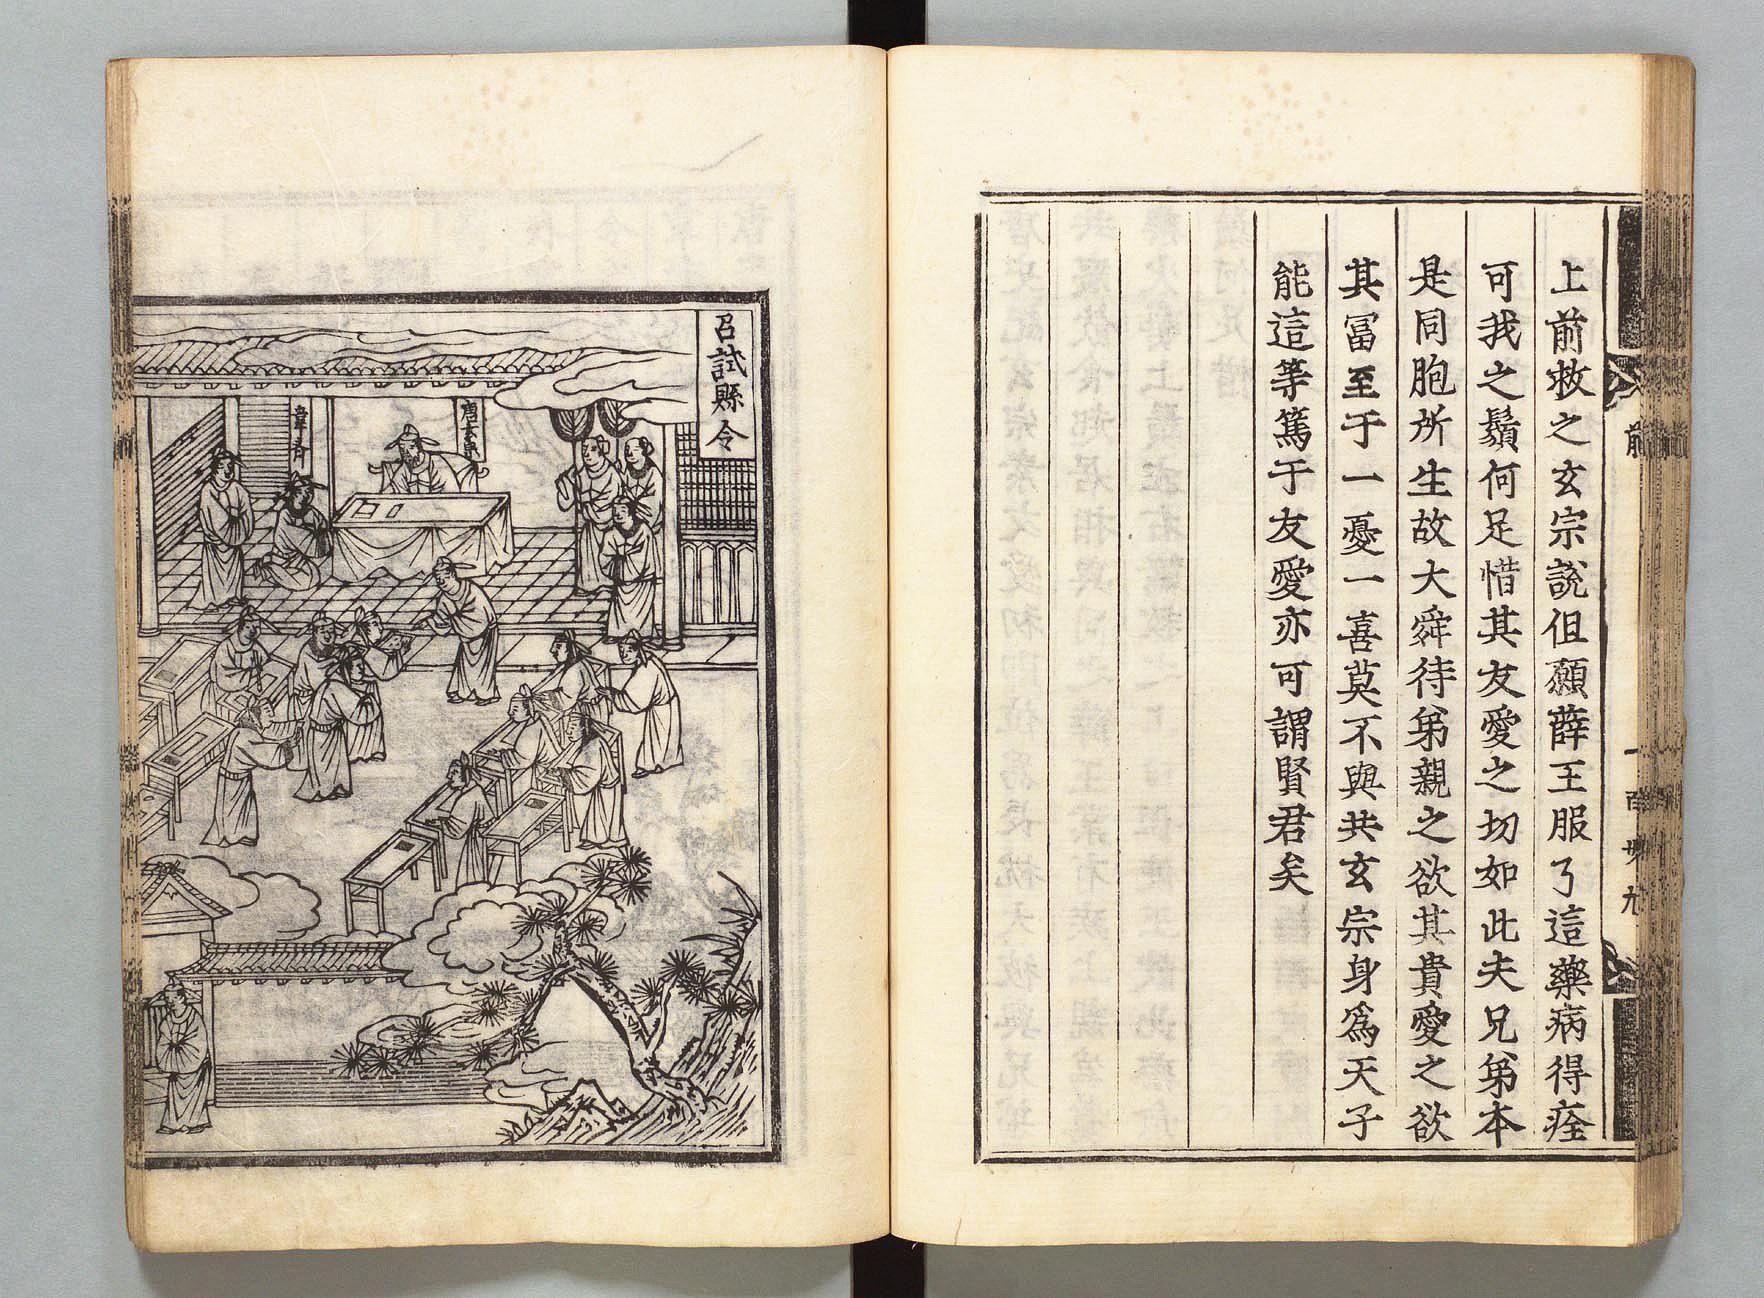 前
一百卌九
上前救之玄宗說但願薛王服了這藥病得痊
可我之鬚何足惜其友愛之切如此夫兄弟本
是同胞所生故大舜待弟親之欲其貴愛之欲
其冨至于一憂一喜莫不與共玄宗身爲天子
能這等篤于友愛亦可謂賢君矣
召試縣令
唐玄宗
韋濟